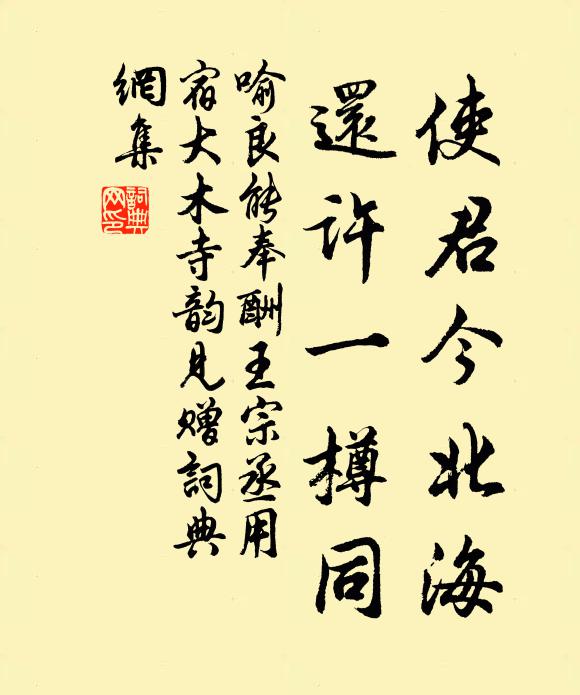 使君今北海
還许一樽同
喻良能奉酬王宗丞用
宿大木寺韵见赠詞典
網集
詞典
网印